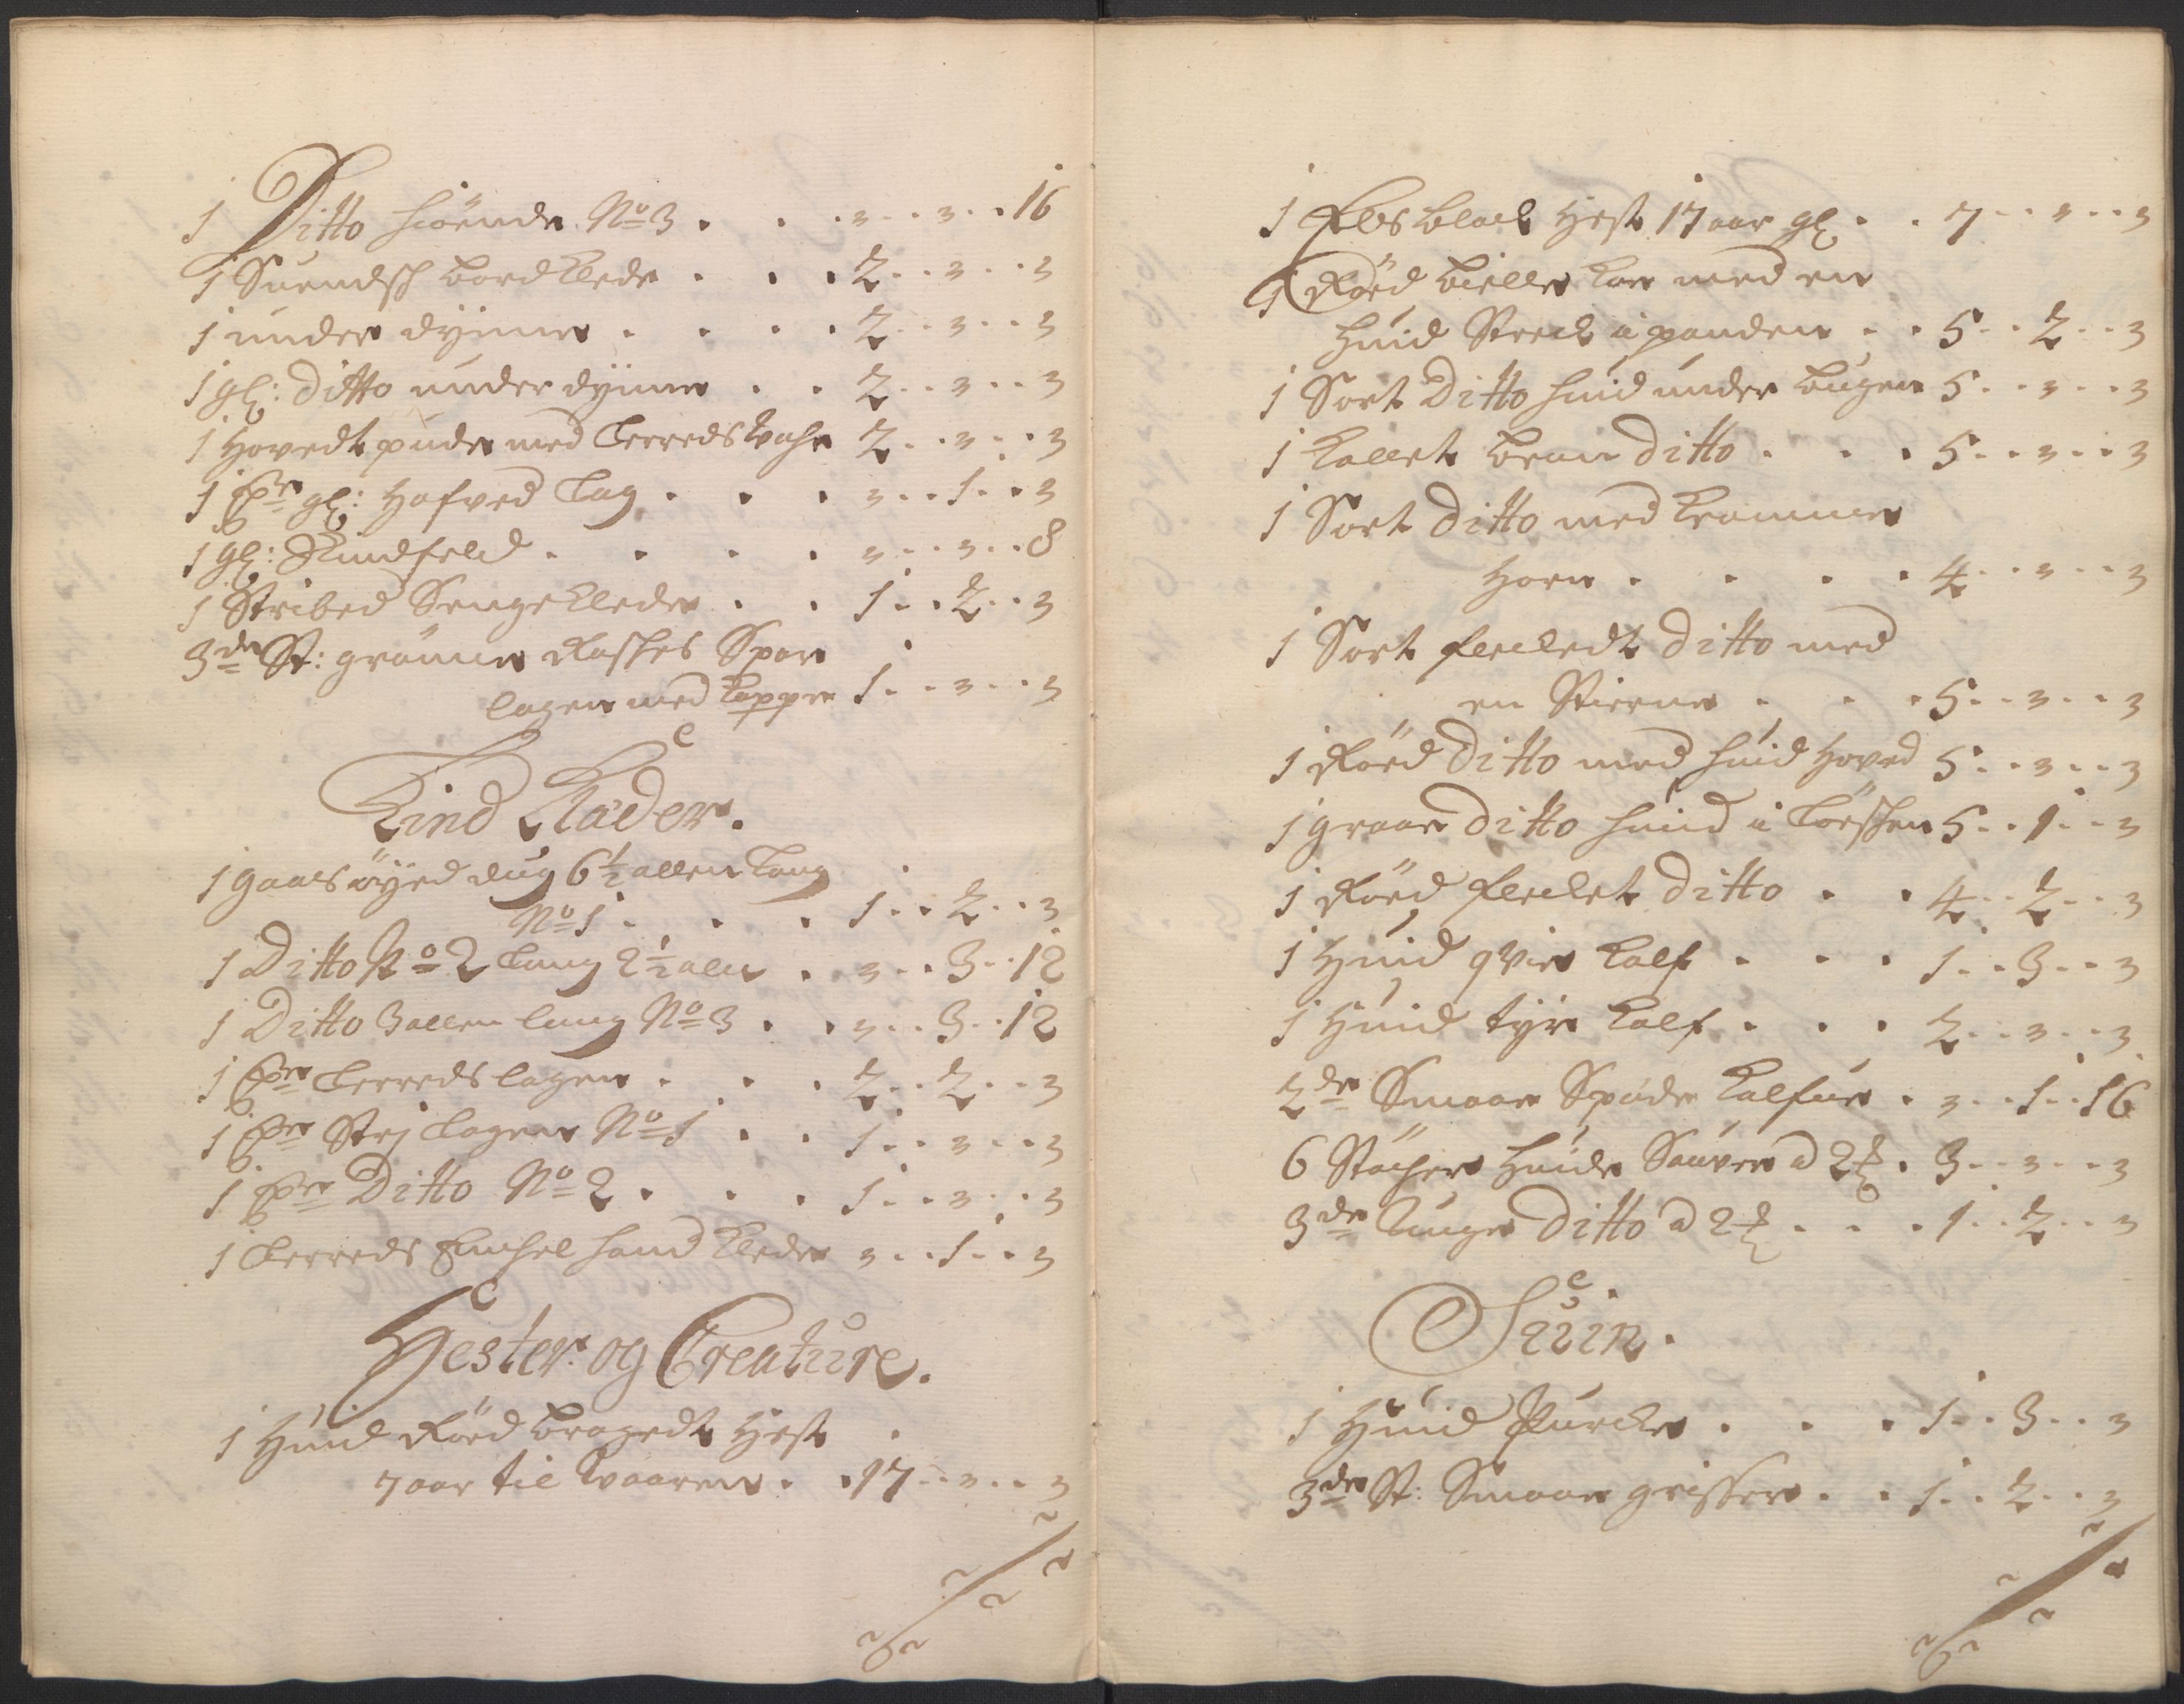 1 Ditto hiörnde No 3 . . . 3 . . 3 . . 16
1 Suendsk bordklede . . . 2 . . 3 . . 3
1 under dynne . . . . 2 . . 3 . . 3
1 gl: Ditto under dynne . . 2 . . 3 . . 3
1 Hovedt pude med lerreds Wahr 2 . . 3 . . 3
1 Par gl: Hofved lag . . . 3 . . 1 . . 3
1 gl: Skindfeld . . . . 3 . . 3 . . 8
1 Stribed Sengeklede . . 1 . . 2 . . 3
3de St: grönne Raskes Spar
lagen med Kappe 1 . . 3 . . 3
Lind Klæder.
1 gaasöyed dug 6½ allen lang
No 1 . . . 1 . . 2 . . 3
1 Ditto No 2 lang 2½ alen . 3 . . 3 . . 12
1 Ditto 3 allen lang No 3 . . 3 . . 3 . . 12
1 Par lerreds lagen . . . 2 . . 2 . . 3
1 Par Stri lagen No 1 . . 1 . . 3 . . 3
1 Par Ditto No 2 . . . 1 . . 3 . . 3
1 lerreds Enkel hand klede 3 . . 1 . . 3
Hester og Creature.
1 Huid Röd bragedt Hest
7 aar til Waaren . . 17 . . 3 . . 3
1 Elsblack Hest 17 aar gl . . 7 . . 3 . . 3
1 Röd bielle koe med en
huid Streck i panden . . 5 . . 2 . . 3
1 Sort Ditto huid under bugen 5 . . 3 . . 3
1 kallet brun Ditto . . . 5 . . 3 . . 3
1 Sort Ditto med kromme
Horn . . . . 4 . . 3 . . 3
1 Sort fleckedt Ditto med
en Stierne . . . 5 . . 3 . . 3
1 Röd Ditto med huid Hoved 5 . . 3 . . 3
1 graae Ditto huid i lösken 5 . . 1 . . 3
1 Röd flecket Ditto . . 4 . . 2 . . 3
1 Huid qvie kalf . . . 1 . . 3 . . 3
1 Huid tyre kalf . . . 2 . . 3 . . 3
2de Smaae Späde kalfue . 3 . . 1 . . 16
6 Stöcher Huide Sauver a 2 . 3 . . 3 . . 3
3de Unge Ditto a 2 . . . 1 . . 2 . . 3
Suin.
1 Huid Purcke . . . 1 . . 3 . . 3
3de St: Smaae grisser . . 1 . . 2 . . 3